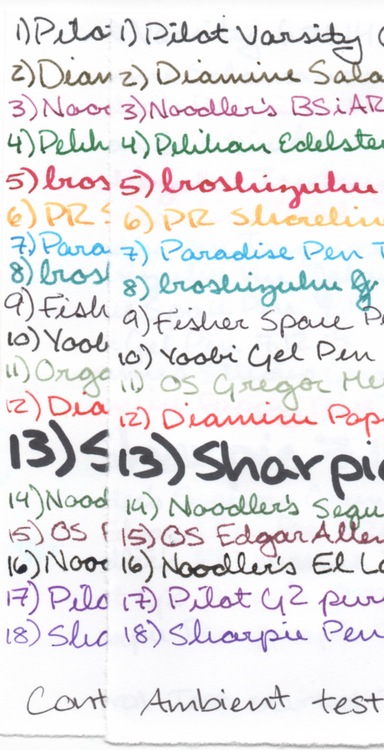 1) Pilo 1) Pilot Varsity
2) Diam 2) Diamine Sala
3) Nooo 3) Noodler's BSiAR
4) Pelik 4) Pelikan Edelste
5) Iros 5) Iroshizuku
6) PR S 6) PR Shorelin
7) Para 7) Paradise Pen T
8) Iros 8) Iroshizuku
9) Fish 9) Fisher Space P
10) Yoob 10) Yoobi Gel Pen
11) Orga 11) OS Gregor He
12) Dia 12) Diamine Pop
13) S 13) Sharpie
14) Nood 14) Noodler's Sequ
15) OS 15) OS Edgar Allen
16) Nooo 16) Noodler's El La
17) Pilo 17) Pilot G2 pur
18) Sha 18) Sharpie Pen
Cont Ambient test